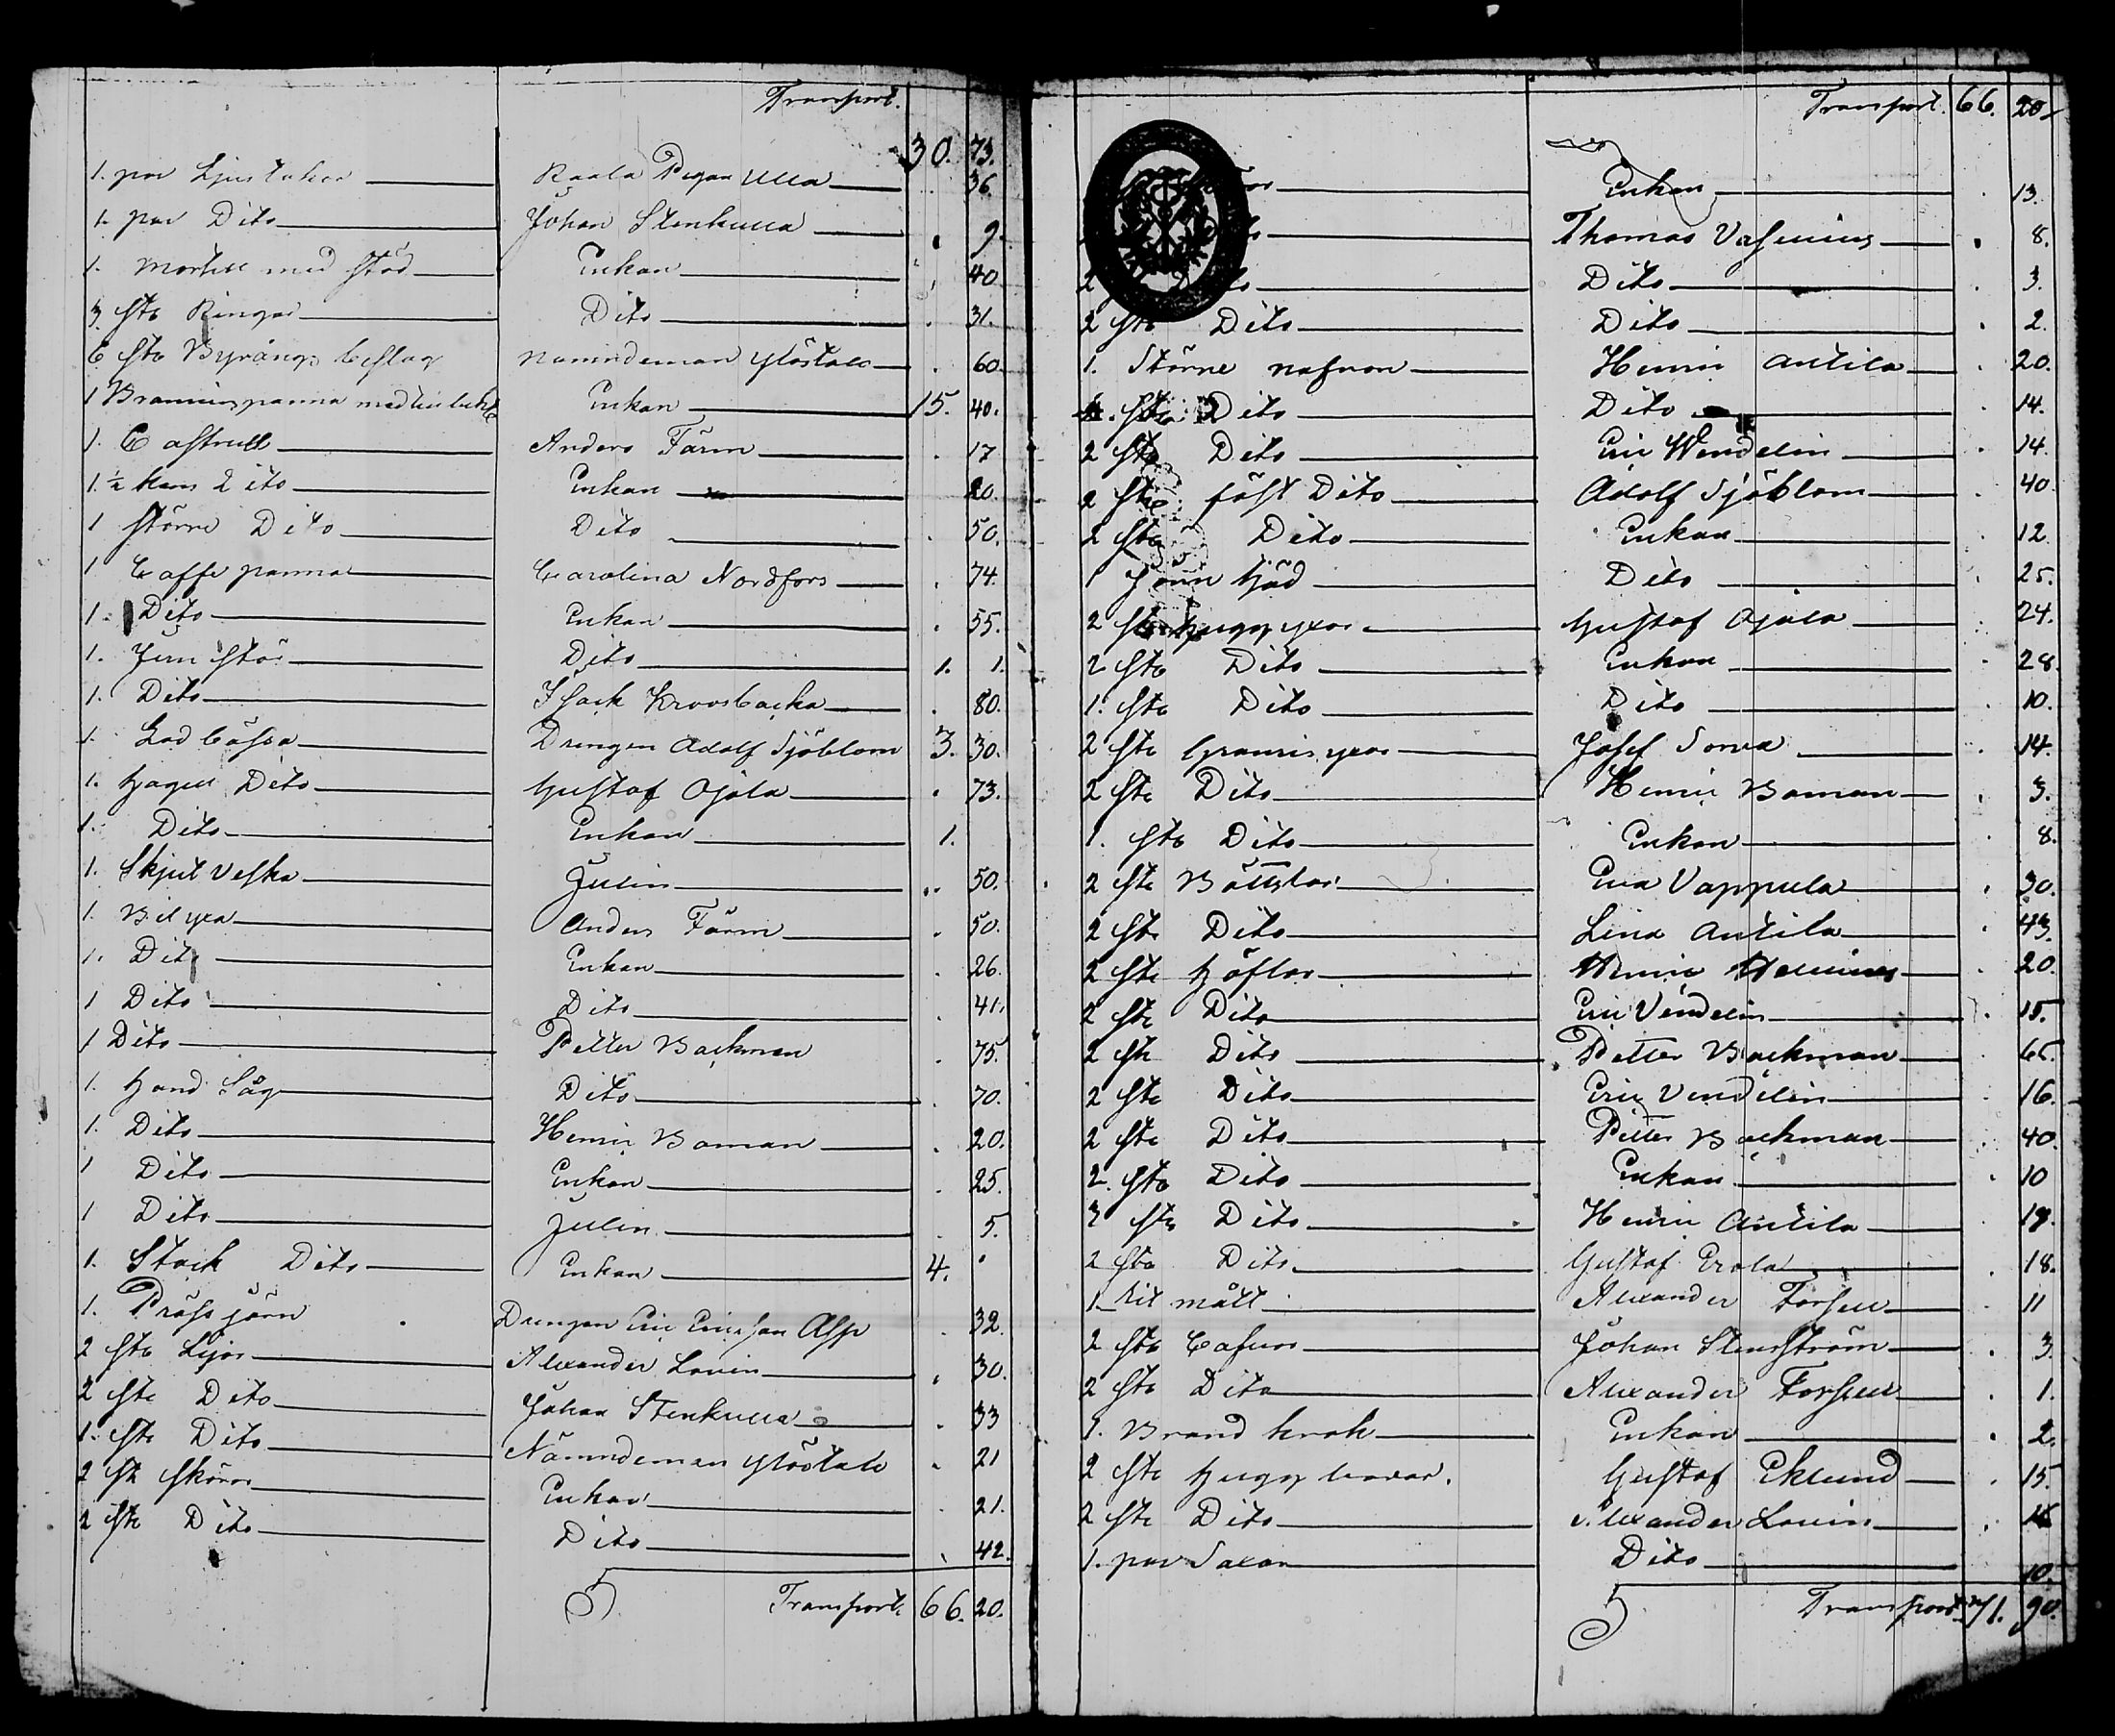 Transport. 30. 73.
1. par Ljustakar Kaala Pigan Ulla . 36.
1. par Dito Johan Stenkulla . 9.
1. Mortell med stöd Enkan . 40
3 sta Ringar Dito . 31.
6 sta Byrångs beslag nämndeman Ylöstalo . 60
1 Bränvinspanna med Enkan 15. 40.
1. Castrull Anders Färm . 17
1. ½ kans Dito Enkan 20.
1 större Dito Dito . 50.
1 Caffe panna Carolina Nordfors . 74.
1. Dito Enkan . 55.
1. Jern stör Dito 1. 1.
1. Dito Isack Kroosbacka . 80.
1. Lod bössa Drengen Adolf Sjöblom 3. 30.
1. Hagel Dito Gustaf Ojala . 73.
1. Dito Enkan 1.
1. Skjut veska Julin . 50.
1. Bil yxa Anders Färm . 50.
1. Dito Enkan . 26.
1 Dito Dito . 41.
1 Dito Petter Backman . 75.
1. Hand Såg Dito . 70.
1. Dito Henric Boman . 20.
1 Dito Enkan . 25.
1 Dito Julin . 5.
1. Stock Dito Enkan 4. .
1. Präss järn Drengen Eric Ericsson Asp . 32.
2 sta Lijor Alexander Lovin . 30.
2 sta Dito Johan Stenkulla . 33
1. sta Dito Nämndeman Ylöstalo . 21
2 sta skäror Enkan . 21.
2 sta Dito Dito . 42.
Transport. 66. 20.
Transport. 66. 20
Enkan . 13.
Thomas Vasenius . 8.
2 Dito . 3.
2 sta Dito Dito . 2.
1. Större nafvare Henric Antila . 20.
sta Dito Dito . 14.
2 sta Dito Eric Wendelin . 14.
2 sta Dito Adolf Sjöblom . 40
2 sta Dito Enkan . 12
1 Dito . 25.
2 sta hugg yxor Gustaf Ojala . 24.
2 sta Dito Enkan . 28.
1. sta Dito Dito . 10.
2 sta yxor Josef Sorva . 14.
2 sta Dito Henric Boman . 3.
1. sta Dito Enkan . 8.
2 sta Eva Vappula . 30.
2 sta Dito Lina Antila . 43.
2 sta Höflar Henric . 20.
2 sta Dito Eric Vendelin . 15.
2 sta Dito Petter Backman . 65.
2 sta Dito Eric Vendelin . 16.
2 sta Dito Petter Backman . 40
2. sta Dito Enkan . 10
sta Dito Henric Antila . 19.
2 sta Dito Gustaf Erola . 18.
1. mått Alexander Forsell . 11
2 sta Johan Stenström . 3.
2 sta Dito Alexander Forsell . 1.
1. Brand krok Enkan . 2.
2 sta Gustaf Eklund . 15.
2 sta Dito Alexander Lovin .
1. par Saxar Dito 10.
Transport. 71. 90.